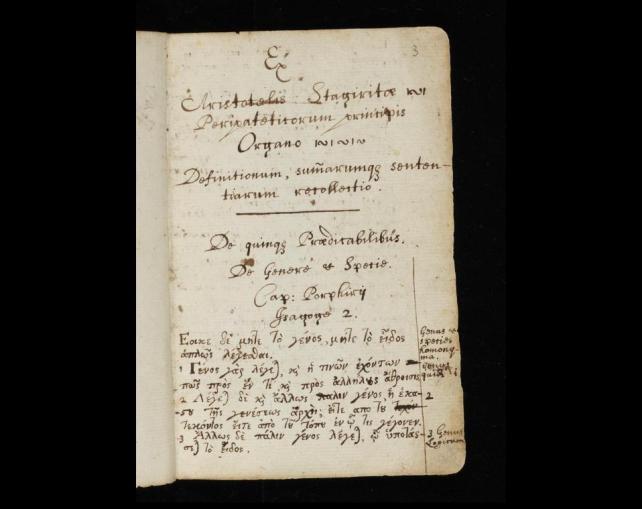 3
Ex
Aristotelis Stagiritæ
Peripateticorum principis
Organo
Definitionum, sum̄arumqꝫ senten-
tiarum recollectio.
De quinqꝫ Prædicabilibus.
De Genere et Specie.
Cap: Porphirij
Isagoge 2.
Εοικε δὲ μητε τὸ γένος, μητε τὸ εἶδος
ἁπλῶς λέγεσθαι.
1 Γένος γὰρ λέγε), κ ἡ τινῶν ἐχόντων
πως πρὸς ἕν τι κ πρὸς ἀλλήλους ἄθροισις
2 Λέγε) δὲ κ ἄλλως πάλιν γένος ἡ ἑκά-
στου τῆς γενέσεως ἀρχὴ; εἴτε απο τοῦ
τεκόντος εἴτε ἀπὸ τοῦ τόπου ἐν ᾧ τις γέγονεν.
3 Ἄλλως δὲ πάλιν γένος λέγε), ᾧ ὑποτάσ-
σε) τὸ εἶδος.
Genus et
species
homony-
ma.
Genus
quid
2
3 Genus
Logicum